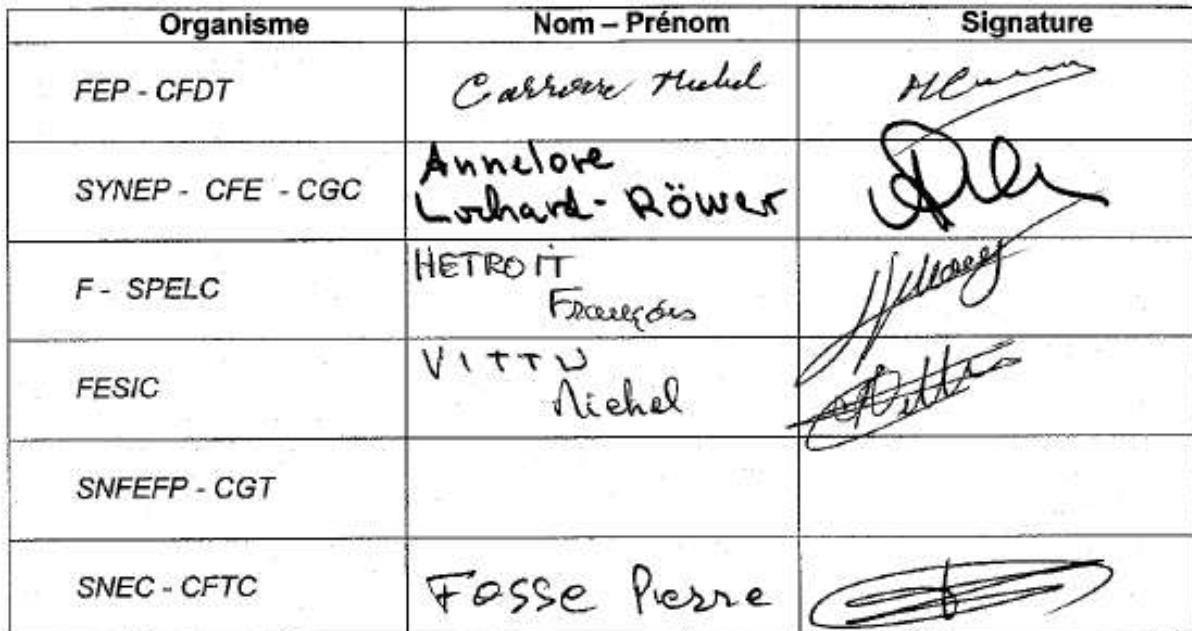 Organisme Nom – Prénom Signature
FEP - CFDT Carrere Michel
SYNEP - CFE - CGC Annelore
Lochard- Röwer
F - SPELC HETROIT
François
FESIC VITTU
Michel
SNFEFP - CGT
SNEC - CFTC Fosse Pierre